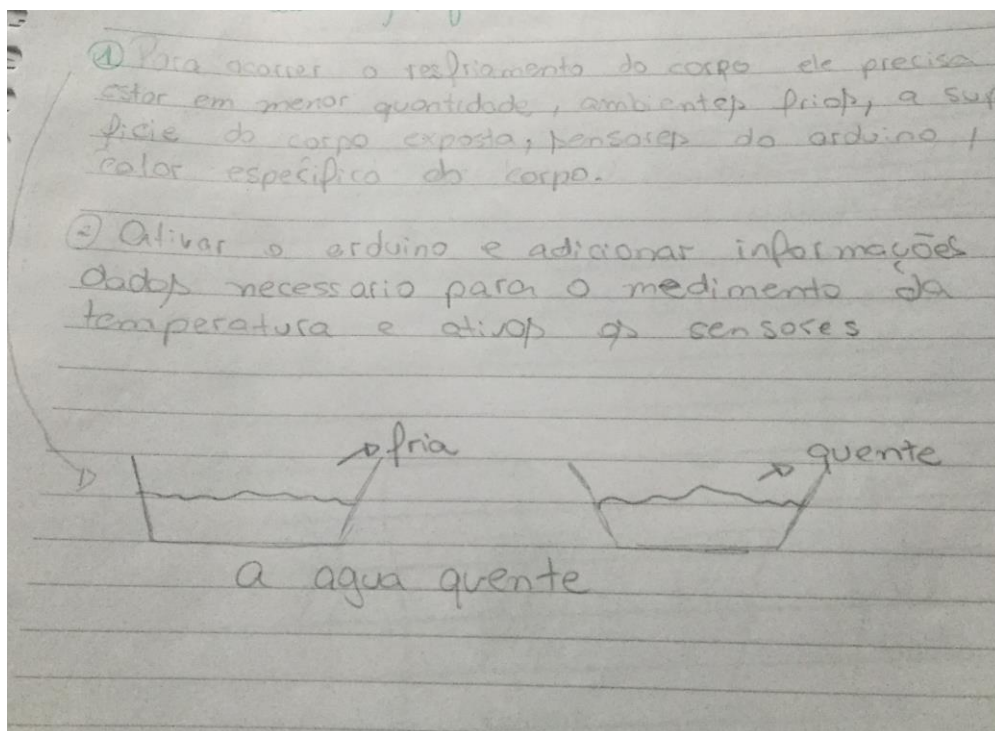 ① Para acorrer o resfriamento do corpo ele precisa
estar em menor quantidade, ambientes frios, a su
ficie do corpo exposta, sensores do arduino,
calor específico do corpo.
② Ativar o arduino e adicionar informações
dados necessario para o medimento da
temperatura e ativas os sensores
fria
quente
a agua quente